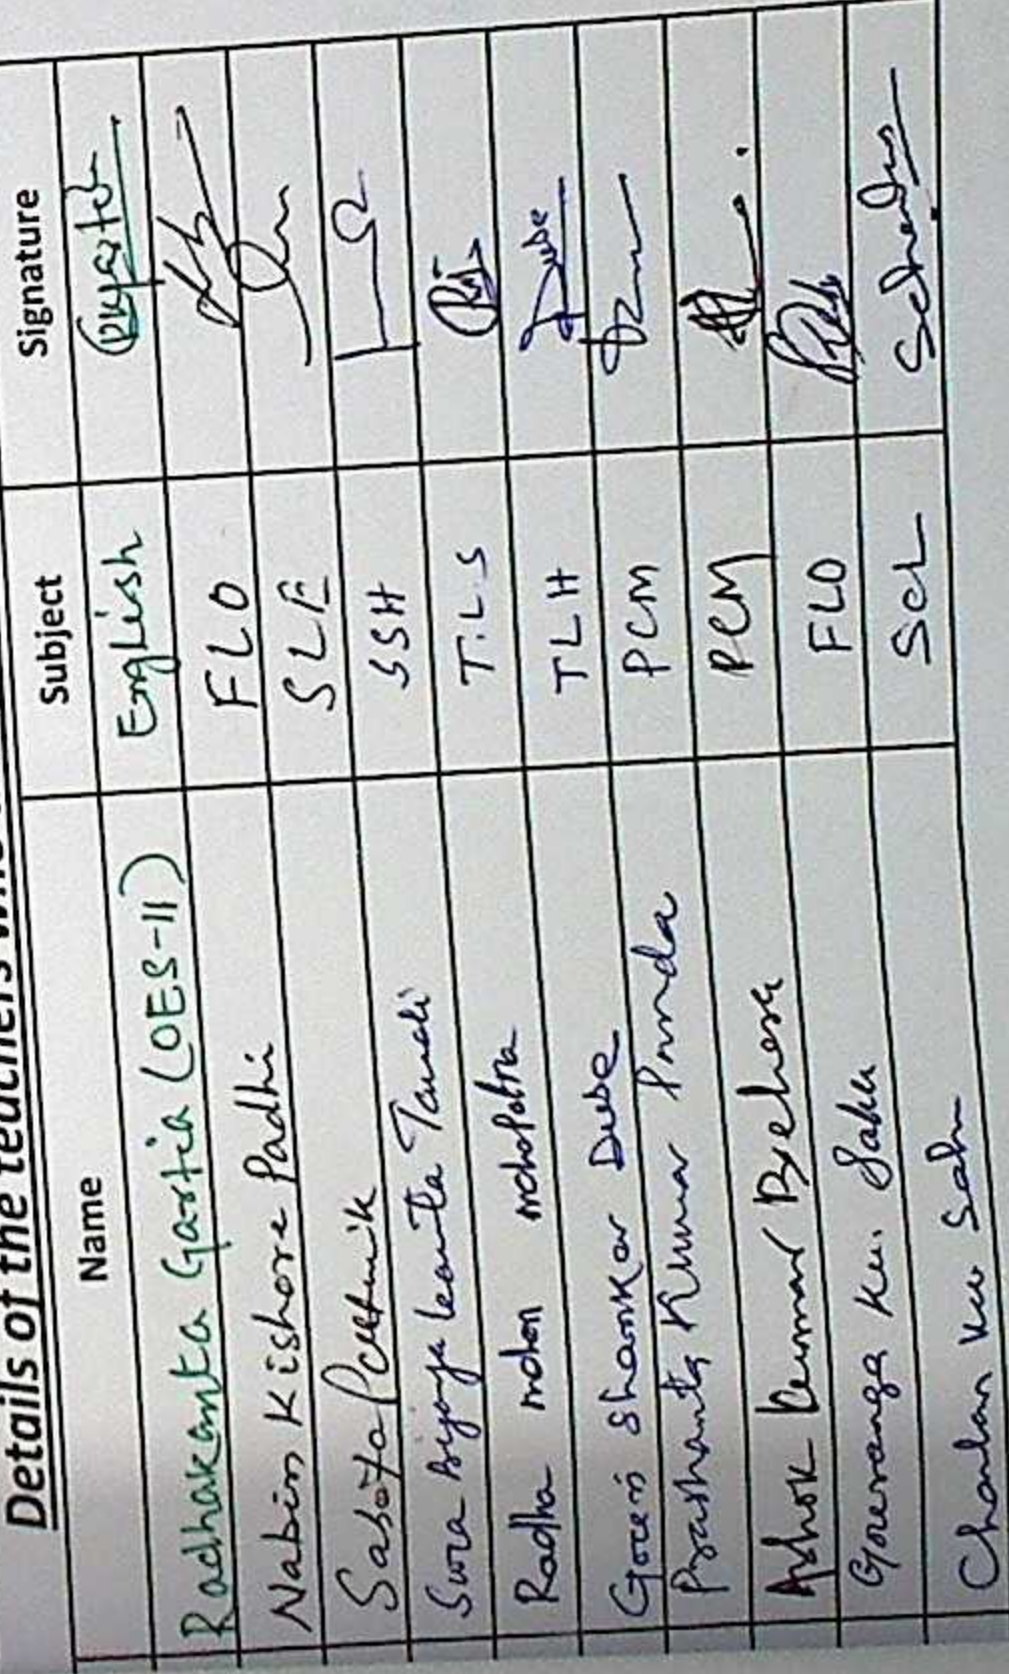 Details of the teachers
Name Subject Signature
Radhakanta Gartia (OES-II) English
Nabin Kishore Padhi FLO
Sabita Pattnaik SLE
Sura Bijaya Laxmi Tandi SSH
Radha mohan mohapatra T.L.S
Goren Shankar Dube TLH Dube
Prashanta Kumar Panda PCM
Ashok Kumar Behera PCM
Gouranga Ku. Sahu FLO
Chandan Ku Sahu SCL